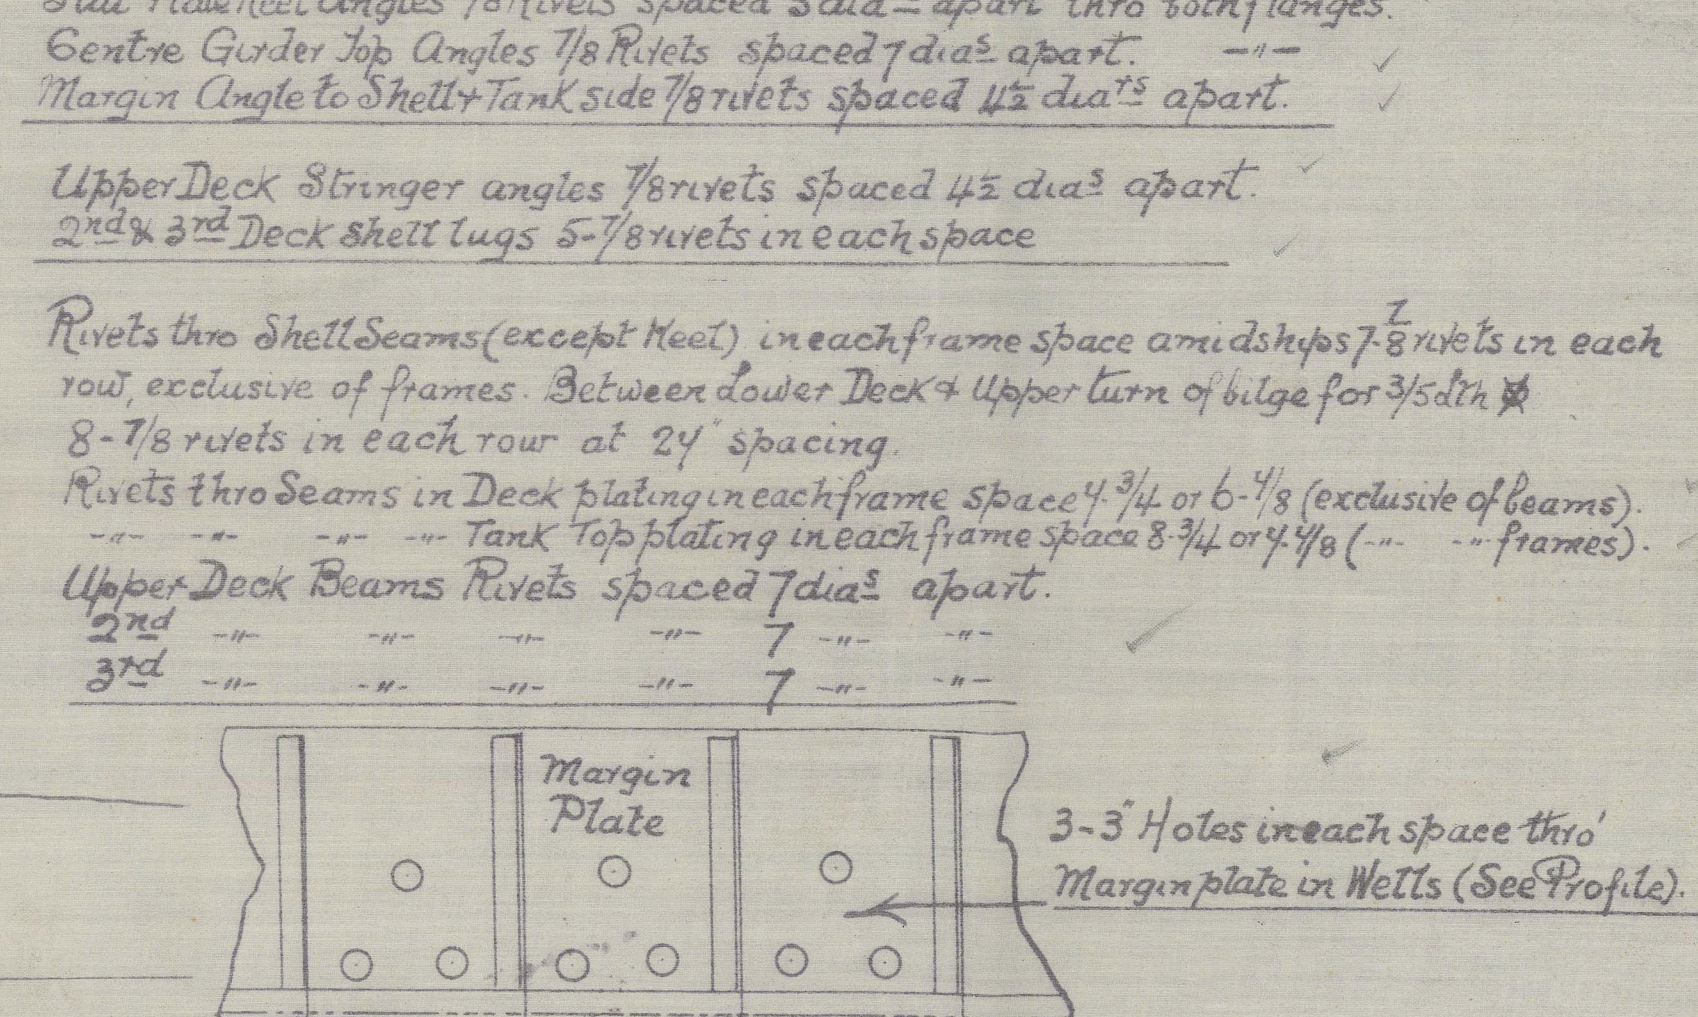 Flat Plate Keel Angles 7/8 Rivets spaced 5 dias apart thro both flanges.
Centre Girder Top Angles 7/8 Rivets spaced 7 dias apart. -"-
Margin Angle to Shell & Tank side 7/8 rivets spaced 4½ diars apart.
Upper Deck Stringer angles 7/8 rivets spaced 4½ dias apart.
2nd & 3rd Deck shell lugs 5-7/8 rivets in each space
Rivets thro Shell Seams (except Keel) in each frame space amidships 7-7/8 rivets in each
row, exclusive of frames. Between Lower Deck & Upper turn of bilge for 3/5 Lth
8-7/8 rivets in each row at 24" spacing.
Rivets thro Seams in Deck plating in each frame space 4-3/4 or 6-4/8 (exclusive of beams).
-"- -"- -"- -"- Tank Top plating in each frame space 8-3/4 or 4-4/8 (-"- -"- frames).
Upper Deck Beams Rivets spaced 7 dias apart.
2nd -"- -"- -"- -"- 7 -"- -"-
3rd -"- -"- -"- -"- 7 -"- -"-
Margin
Plate
3-3" Holes in each space thro'
Margin plate in Wells (See Profile).